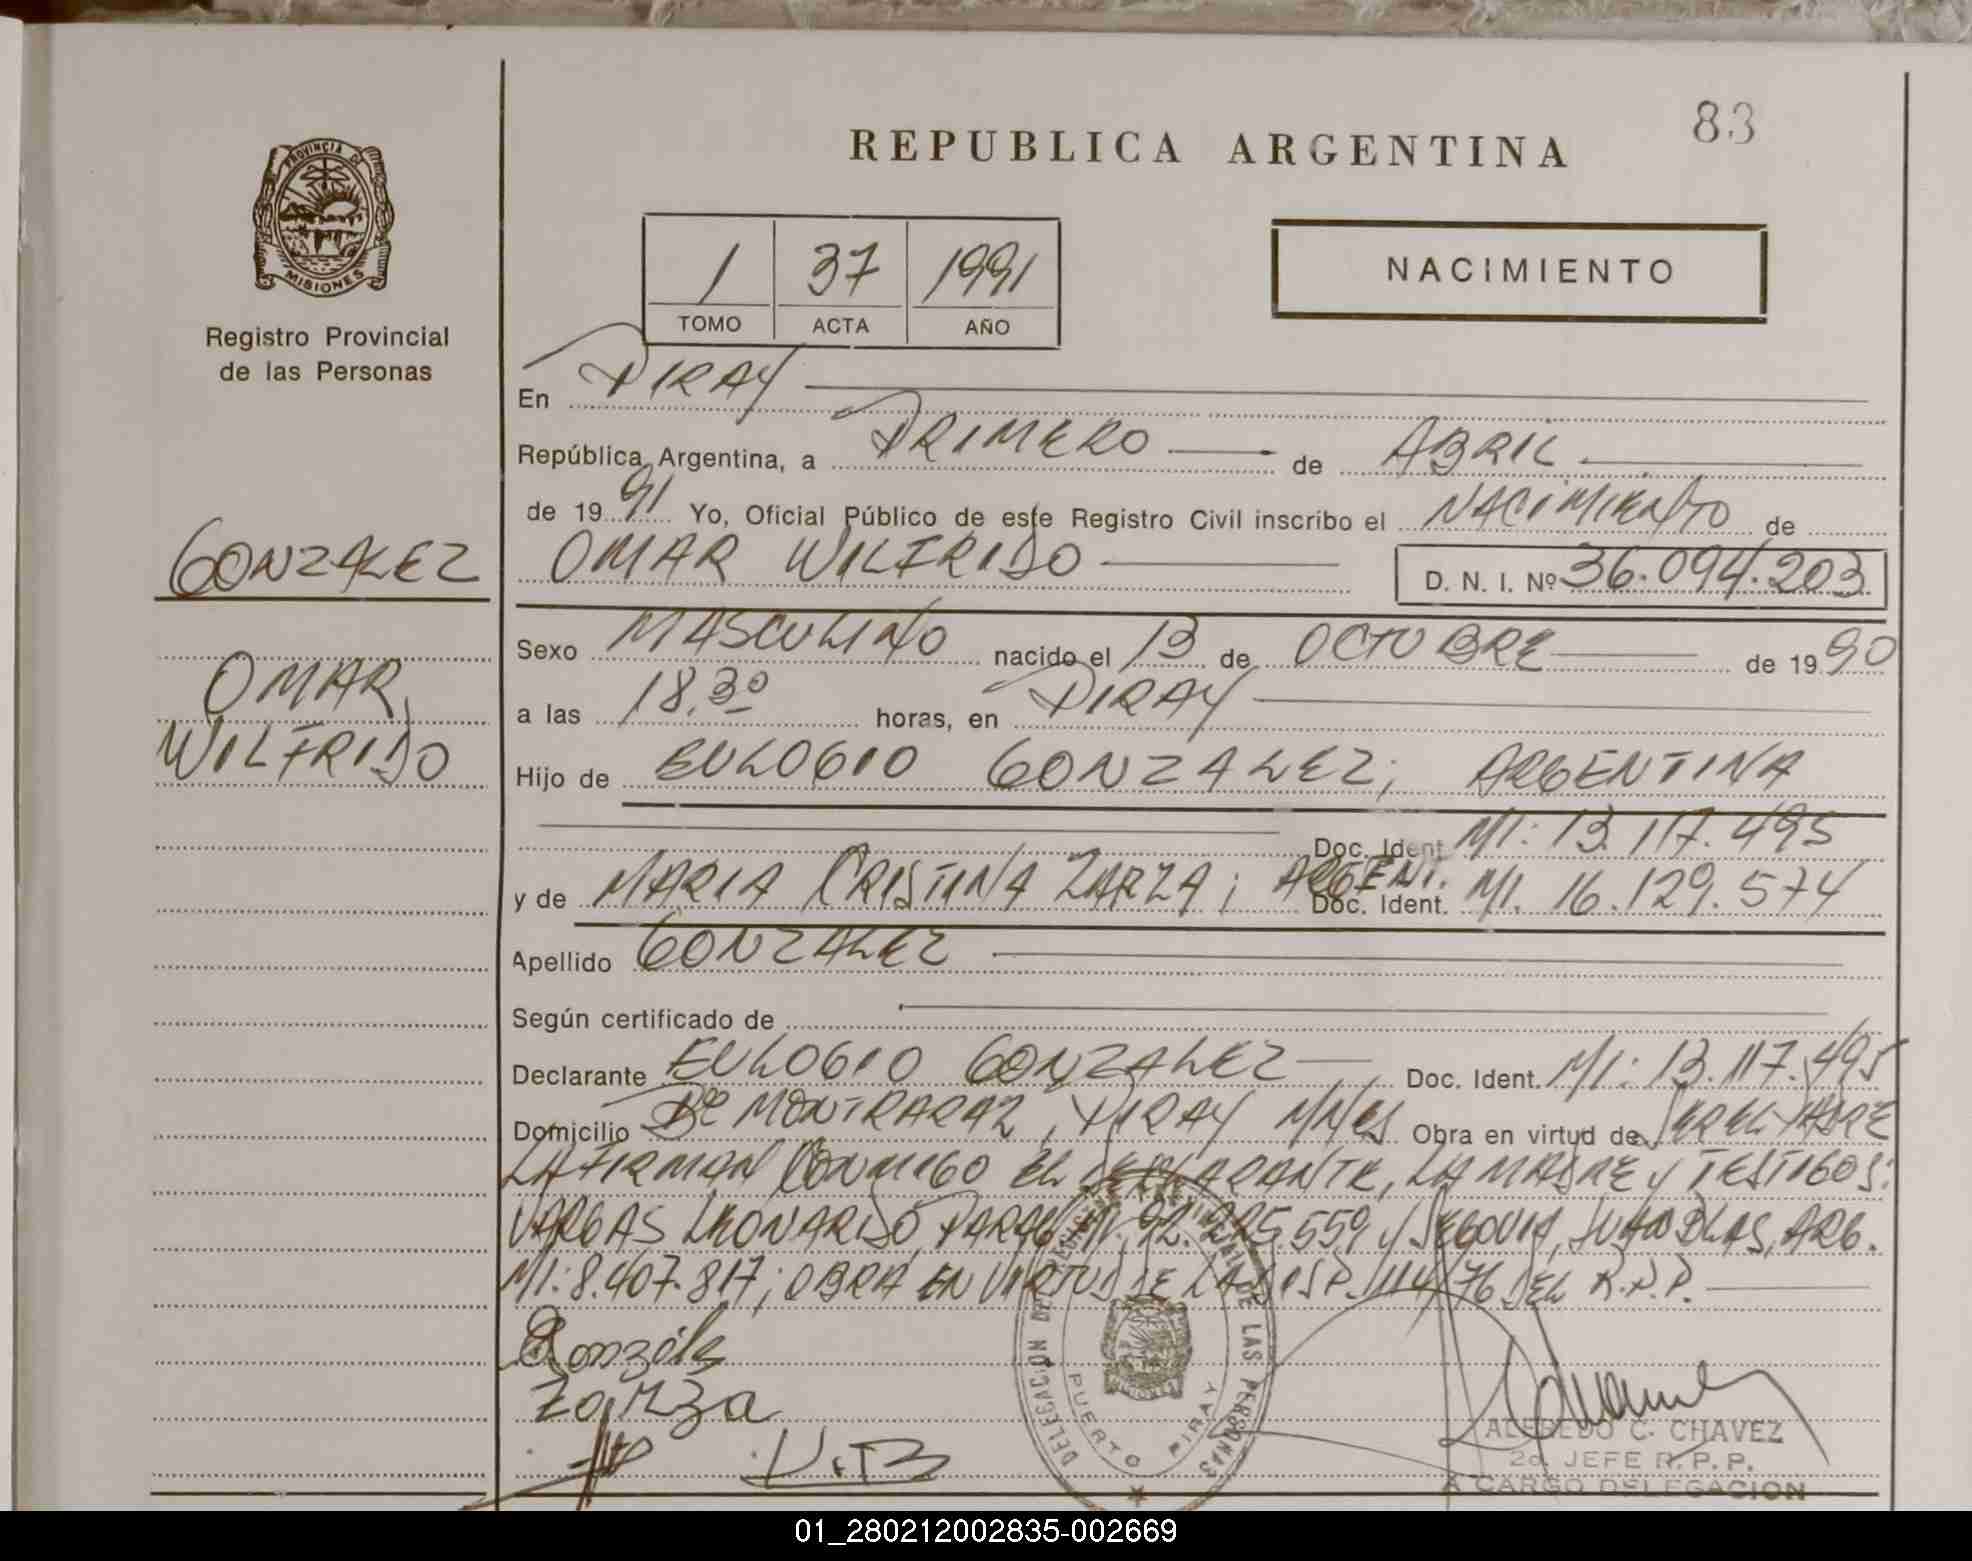 83
REPUBLICA ARGENTINA
PROVINCIA DE MISIONES
Registro Provincial
de las Personas
1 37 1991
TOMO ACTA AÑO
NACIMIENTO
GONZALEZ
OMAR
WILFRIDO
En PIRAY
República Argentina, a PRIMERO de ABRIL
de 1991 Yo, Oficial Público de este Registro Civil inscribo el NACIMIENTO de
OMAR WILFRIDO D. N. I. Nº 36.094.203
Sexo MASCULINO nacido el 13 de OCTUBRE de 1990
a las 18,30 horas, en PIRAY
Hijo de EULOGIO GONZALEZ; ARGENTINA
Doc. Ident. MI: 13.117.495
y de MARIA CRISTINA ZARZA; ARGENT. Doc. Ident. MI. 16.129.574
Apellido GONZALEZ
Según certificado de
Declarante EULOGIO GONZALEZ Doc. Ident. MI: 13.117.495
Domicilio Bº MONTRARAZ, PIRAY MNES Obra en virtud de SER EL PADRE
FIRMAN CONMIGO EL DECLARANTE, LA MADRE Y TESTIGOS:
VARGAS LEONARDO, PARAG. MI. 92.225.559 y SEGOVIA, JUAN BLAS, ARG.
MI: 8.407.817; OBRA EN VIRTUD DE LA DISP. 114/76 DEL R.P.P.
Gonzáles
Zarza
V.B
DELEGACION DEL REGISTRO PROVINCIAL DE LAS PERSONAS
PUERTO PIRAY
ALFREDO C. CHAVEZ
2do. JEFE R.P.P.
A CARGO DELEGACION
01_280212002835-002669